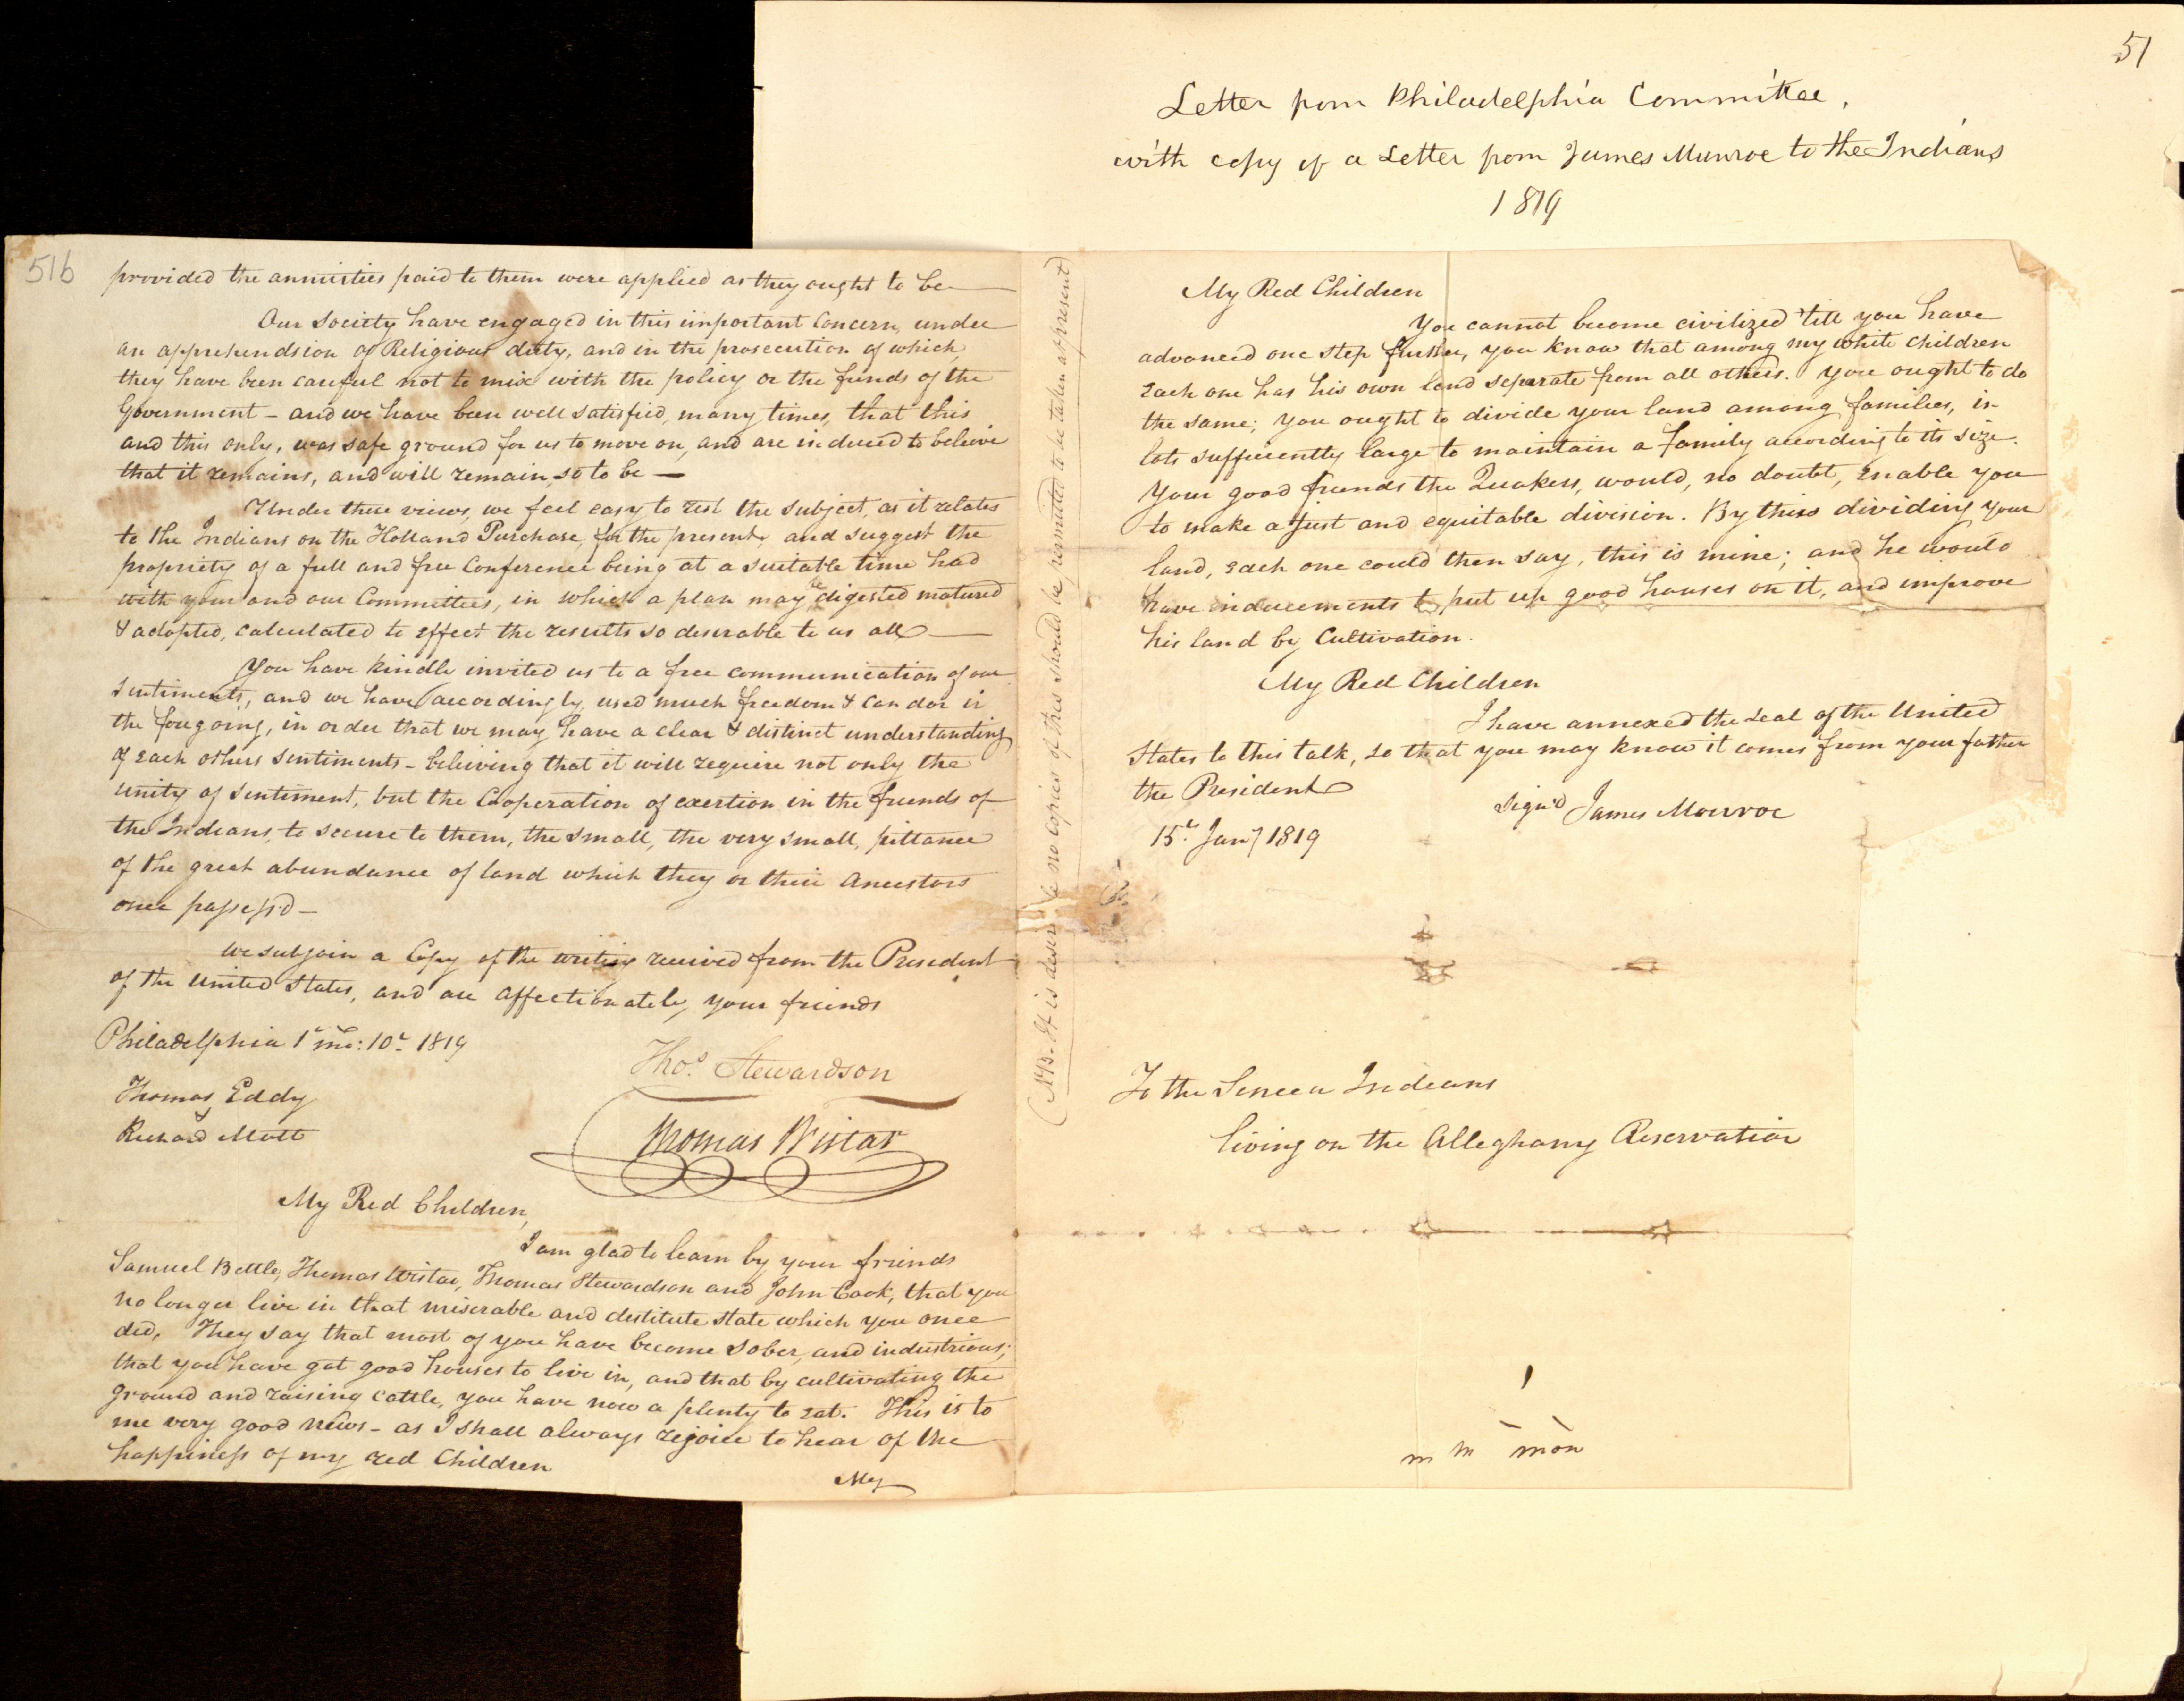 51
Letter from Philadelphia Committee,
with copy of a Letter from James Munroe to the Indians
1819
51b
provided the annuities paid to them were applied as they ought to be
Our Society have engaged in this important Concern, under
an apprehendsion of Religious duty, and in the prosecution of which,
they have been careful not to mix with the policy or the funds of the
Government - and we have been well satisfied, many times, that this
and this only, was safe ground for us to move on, and are induced to believe
that it remains, and will remain, so to be —
Under these views, we feel easy to rest the subject, as it relates
to the Indians on the Holland Purchase, for the present, and suggest the
propriety of a full and free Conference being at a suitable time had
with your and our Committees, in which a plan may be digested matured
& adopted, calculated to effect the results so desirable to us all —
You have kindly invited us to a free communication of our
Sentiments, and we have accordingly, used much freedom & Candor in
the foregoing, in order that we may have a clear & distinct understanding
of each others sentiments - believing that it will require not only the
unity of sentiment, but the Cooperation of exertion in the friends of
the Indians, to secure to them, the small, the very small, pittance
of the great abundance of land which they or their Ancestors
once possess'd —
We subjoin a Copy of the writing received from the President
of the United States, and are affectionately, your friends
Philadelphia 1st mo: 10th 1819
Thos. Stewardson
Thomas Eddy
&
Richard Mott
Thomas Wistar
My Red Children,
I am glad to learn by your friends
Samuel Bettle, Thomas Wistar, Thomas Stewardson and John Cook, that you
no longer live in that miserable and destitute state which you once
did, They say that most of you have become sober, and industrious;
that you have got good houses to live in, and that by cultivating the
ground and raising cattle, you have now a plenty to eat. This is to
me very good news - as I shall always rejoice to hear of the
happiness of my red Children
My
(NB. It is desir'd no copies of this should be permitted to be taken at present)
My Red Children
You cannot become civilized 'till you have
advanced one step further, you know that among my white children
each one has his own land separate from all others. You ought to do
the same; you ought to divide your land among families, in
lots sufficiently large to maintain a family according to its size.
Your good friends the Quakers, would, no doubt, enable you
to make a just and equitable division. By thus dividing your
land, each one could then say, this is mine; and he would
have inducements to put up good houses on it, and improve
his land by Cultivation.
My Red Children
I have annexed the seal of the United
States to this talk, so that you may know it comes from your father
the President
Sign'd James Monroe
15th Jany 1819
To the Seneca Indians
living on the Alleghany Reservation
m m mon